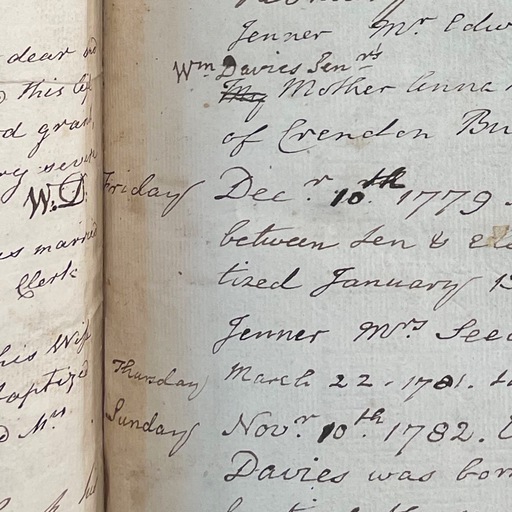 dear
this
d gran
W.D.
as married
Clerk
his Wife
baptized
d Mrs
Jenner Mr Edw
Wm Davies Senrs
My Mother Anna
of Crendon Bu
Friday Decr 10th 1779
between Ten & Ele
tized January 13
Jenner Mrs See
Thursday March 22. 1781.
Sunday Novr 10th 1782.
Davies was born